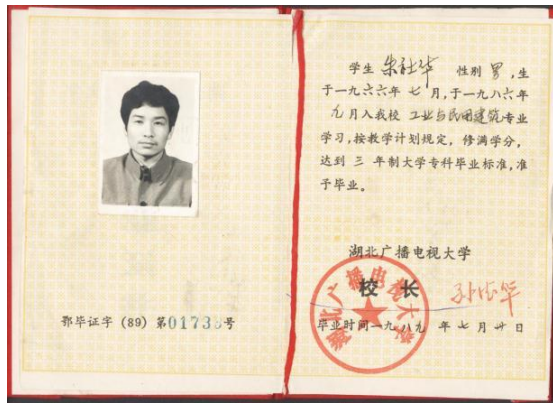 鄂毕证字（89）第01733号
学生 朱社华 性别 男，生
于一九六六年 七 月，于一九八六年
九 月入我校 工业与民用建筑专业
学习，按教学计划规定，修满学分，
达到 三 年制大学专科毕业标准，准
予毕业。
湖北广播电视大学
校 长
毕业时间一九八九 年 七 月 廿 日
湖北广播电视大学